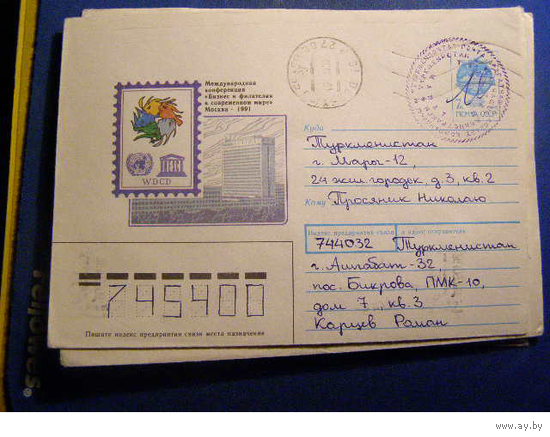 Международная
конференция
«Бизнес и филателия
в современном мире»
Москва - 1991
WDCD
ПОЧТА СССР
Куда Туркменистан
г. Мары-12,
24 жил. городок, д. 3, кв. 2
Кому Просяник Николаю
Индекс предприятия связи и адрес отправителя
744032 Туркменистан
г. Ашгабат-32,
пос. Бикрова, ПМК-10,
дом 7, кв. 3
Карцев Роман
745400
Пишите индекс предприятия связи места назначения
www.ay.by